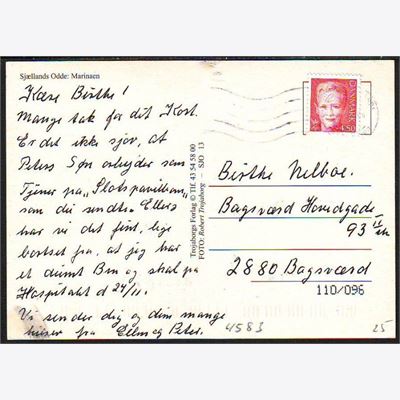 Sjællands Odde: Marinaen
Kære Birthe!
Mange tak for det Kort.
Er det ikke sjov, at
Peters Søn arbejder som
Tjener på "Slotspavillonen",
som du sendte. Ellers
har vi det fint, lige
bortset fra, at jeg har
et dumt Ben og skal på
Hospitalet d 24/11.
Vi sender dig og dine mange
hilsner fra Ellen og Peter.
Trojaborgs Forlag © Tlf. 43 54 58 00
FOTO: Robert Trojaborg – SJO 13
DANMARK
4.50
Birthe Nelboe.
Bagsværd Hovedgade
93
2880 Bagsværd
110/096
4583
25